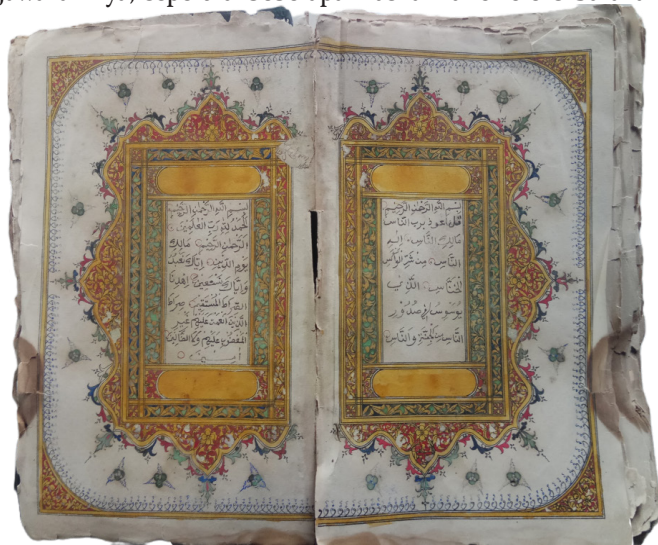 بسم الله الرحمن الرحيم
قل اعوذ برب الناس
مالك الناس اله
الناس من شر الوسواس
الخناس الذي
يوسوس في صدور
الناس من الجنة والناس
بسم الله الرحمن الرحيم
الحمد لله رب العلمين
الرحمن الرحيم مالك
يوم الدين اياك نعبد
واياك نستعين اهدنا
الصراط المستقيم صراط
الذين انعمت عليهم غير
المغضوب عليهم ولا الضالين
امين